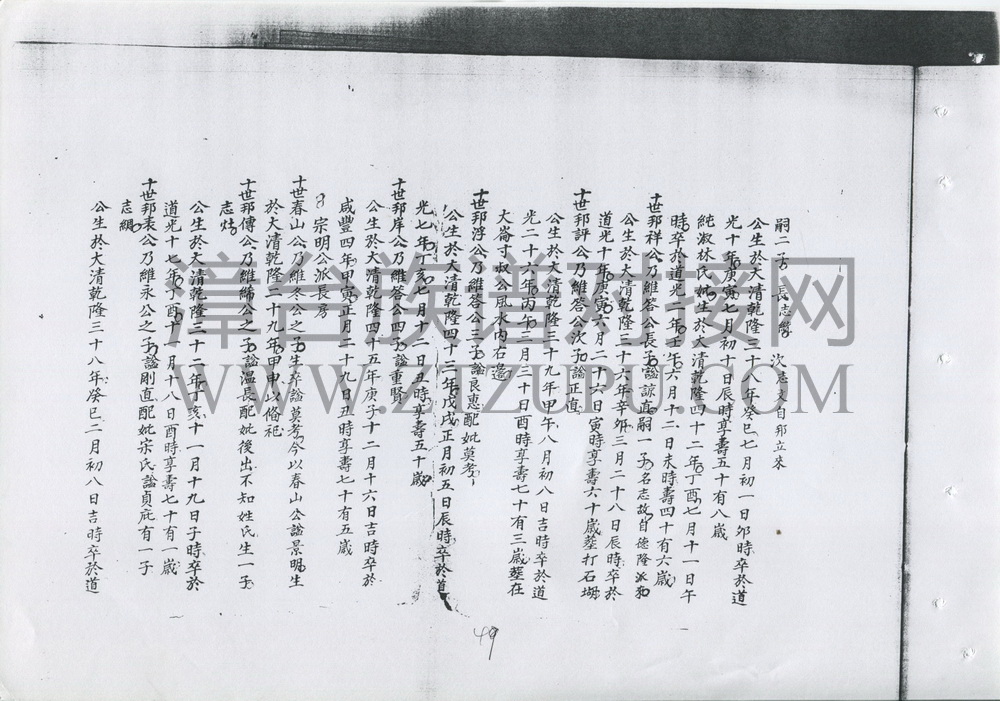 嗣二子 長志鸞 次志文自邦立來
公生於大清乾隆三十八年癸巳七月初一日卯時卒於道
光十年庚寅七月初十日辰時享壽五十有八歲
純淑林氏妣生於大清乾隆四十二年丁酉七月十一日午
時卒於道光二年壬午六月十二日未時壽四十有六歲
十世邦祥公乃維答公長子謚諒直嗣一子名志故自德隆派
公生於大清乾隆三十六年辛卯三月二十八日辰時卒於
道光十年庚寅六月二十六日寅時享壽六十歲塟打石坳
十世邦評公乃維答公次子謚正直
公生於大清乾隆三十九年甲午八月初八日吉時卒於道
光二十六年丙午三月三十日酉時享壽七十有三歲塟在
大崙寸叔公風水內右邉
十世邦浮公乃維答公三子謚良惠配妣莫考
公生於大清乾隆四十三年戊戌正月初五日辰時卒於道
光七年丁亥七月十二日丑時享壽五十歲
十世邦岸公乃維答公四子謚重賢
公生於大清乾隆四十五年庚子十二月十六日吉時卒於
咸豐四年甲寅正月二十九日丑時享壽七十有五歲
宗明公派長房
十世春山公乃維冬公之子生卒謚莫考今以春山公謚景明生
於大清乾隆二十九年甲申以偹祀
十世邦傳公乃維締公之子謚溫長配妣後出不知姓氏生一子
志炓
公生於大清乾隆三十二年丁亥十一月十九日子時卒於
道光十七年丁酉十一月十八日酉時享壽七十有一歲
十世邦表公乃維永公之子謚剛直配妣宋氏謚貞庇有一子
志綢
公生於大清乾隆三十八年癸巳二月初八日吉時卒於道
49
漳台族谱对接网
WWW.ZTZUPU.COM